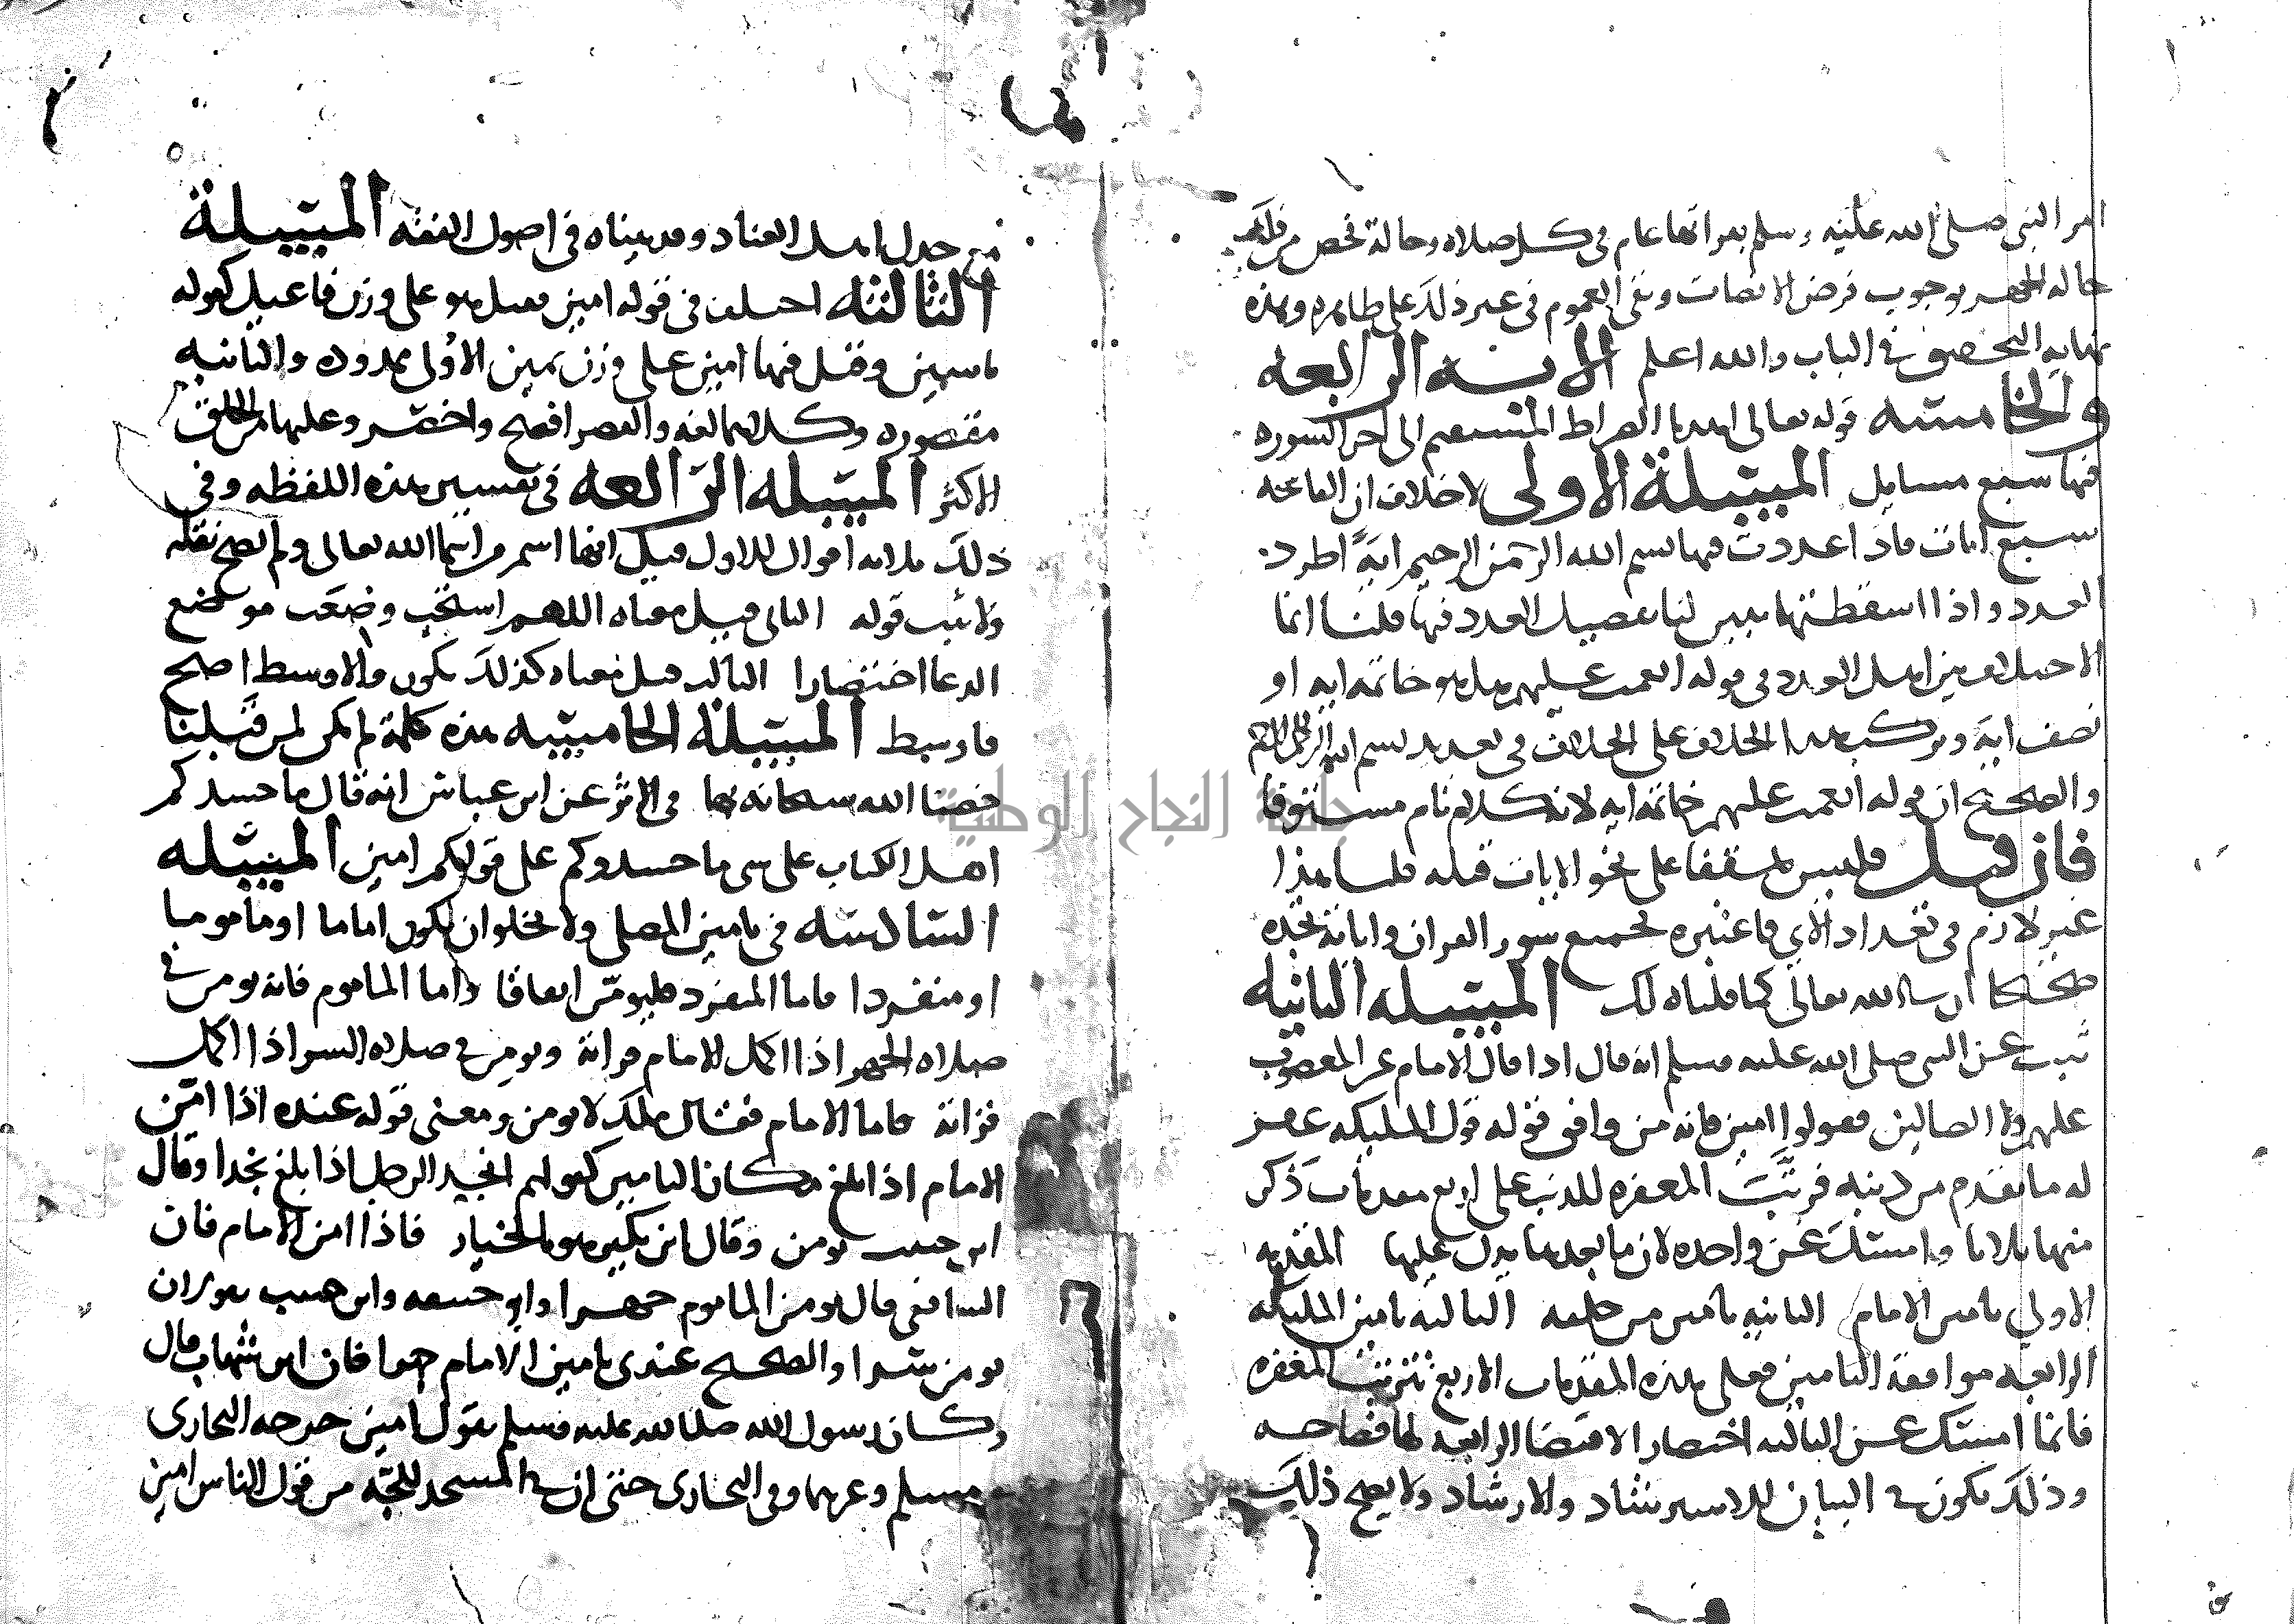 امر النبي صلى الله عليه وسلم بقراتها عام في كل صلاة وحالة فخص من ذلك
حاله الجهر بوجوب فرض الانصات وبقى العموم في غير ذلك على ظاهره وهذه
نهايه التحصيق في الباب والله اعلم الايه الرابعه
والخامسه قوله تعالى اهدنا الصراط المستقيم الى اخر السوره
فيها سبع مسايل المسيلة الاولى لا خلاف ان الفاتحه
سبع ايات فاذا عددت فيها بسم الله الرحمن الرحيم ايةً اطرد
العدد واذا اسقطتها تبين لنا تفصيل العدد فيها قلنا انما
الاختلاف بين اهل العدد في قوله انعمت عليهم هل هو خاتمه ايه او
نصف اية ويركب هذا الخلاف على الخلاف في تعديد بسم الله الرحمن الرحيم
والصحيح ان قوله انعمت عليهم خاتمة ايه لانه كلام تام مستوفا
فان قيل فليس بمقفا على نحو الايات قبله قلنا هذا
غير لازم في تعداد الاي فاعتبره بجميع سور القران واياته تجده
صحيحا ان شا الله تعالى كما قلناه لك المسيله الثانيه
ثبت عن النبي صلى الله عليه وسلم انه قال اذا قال الامام غير المغضوب
عليهم ولا الضالين فقولوا امين فانه من وافق قوله قول المليكه غفر
له ما تقدم من ذنبه فرتَّبَ المغفره للذنب على اربع مقدمات ذكر
منها ثلاثا وامسك عن واحده لان ما بعدها يدل عليها المقدمه
الاولى تامين الامام الثانيه تامين من خلفه الثالثه تامين المليكه
الرابعه موافقة التامين فعلى هذه المقدمات الاربع تترتب المغفره
فانما امسك عن الثالثه اختصارا لاقتضا الرابعه لها فصاحه
وذلك يكون في البيان للاسترشاد والارشاد ولا يصح ذلك
مع جدل اهل العناد وقد بيناه في اصول الفقه المسيلة
الثالثه اختلف في قوله امين فقيل هو على وزن فاعيل كقوله
ياسين وقيل فيها امين على وزن يمين الاولى ممدوده والثانيه
مقصوره وكلاهما لغه والقصر افصح واخصر وعليها من الخلق
الاكثر المسيله الرابعه في تفسير هذه اللفظه وفي
ذلك ثلاثه اقوال الاول قيل انها اسم من اسما الله تعالى ولم يصح نقله
ولا ثبت قوله الثاني قيل معناه اللهم استجب وضعت موضع
الدعا اختصارا الثالث قيل معناه كذلك يكون والاوسط اصح
فاوسط المسيلة الخامسه هذه كلمة لم تكن لمن قبلنا
خصنا الله سبحانه بها في الاثر عن ابن عباس انه قال ما حسدكم
اهل الكتاب على شي ما حسدوكم على قولكم امين المسيله
السادسه في تامين المصلي ولا يخلوا ان يكون اماما او ماموما
او منفردا فاما المنفرد فليومّن اتفاقا واما الماموم فانه يومن في
صلاه الجهر اذا اكمل الامام قراة ويومن في صلاه السر اذا اكمل
قراته فاما الامام فقال ملك لا يومن ومعنى قوله عنده اذا امّن
الامام اذا بلغ مكان التامين كقولهم انجد الرجل اذا بلغ نجدا وقال
ابن حبيب يومن وقال ابن بكير هو بالخيار فاذا امن الامام فان
الشافعي قال يومن الماموم جهرا وابو حنيفه وابن حبيب يقولان
يومن سرا والصحيح عندي تامين الامام جهرا فان ابن شهاب قال
وكان رسول الله صلى الله عليه وسلم يقول امين خرجه البخاري
ومسلم وغيرهما وفي البخاري حتى ان في المسجد للجّه من قول الناس امين
جامعة النجاح الوطنية